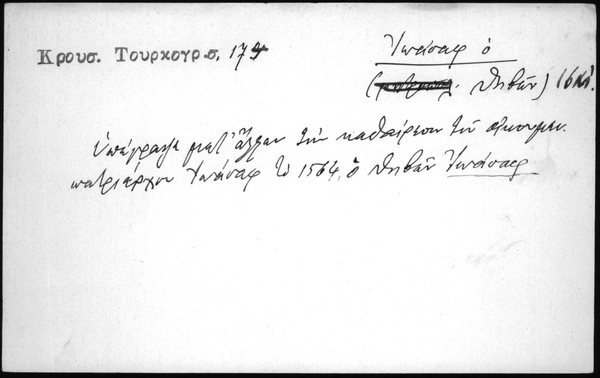 Κρουσ. Τουρκογρ.σ. 174
Ἰωάσαφ ὁ
Θηβῶν) 16 αἰ.
Ὑπέγραψε μετ' ἄλλων τὴν καθαίρεσιν τοῦ οἰκουμεν.
πατριάρχου Ἰωάσαφ τῷ 1564, ὁ Θηβῶν Ἰωάσαφ